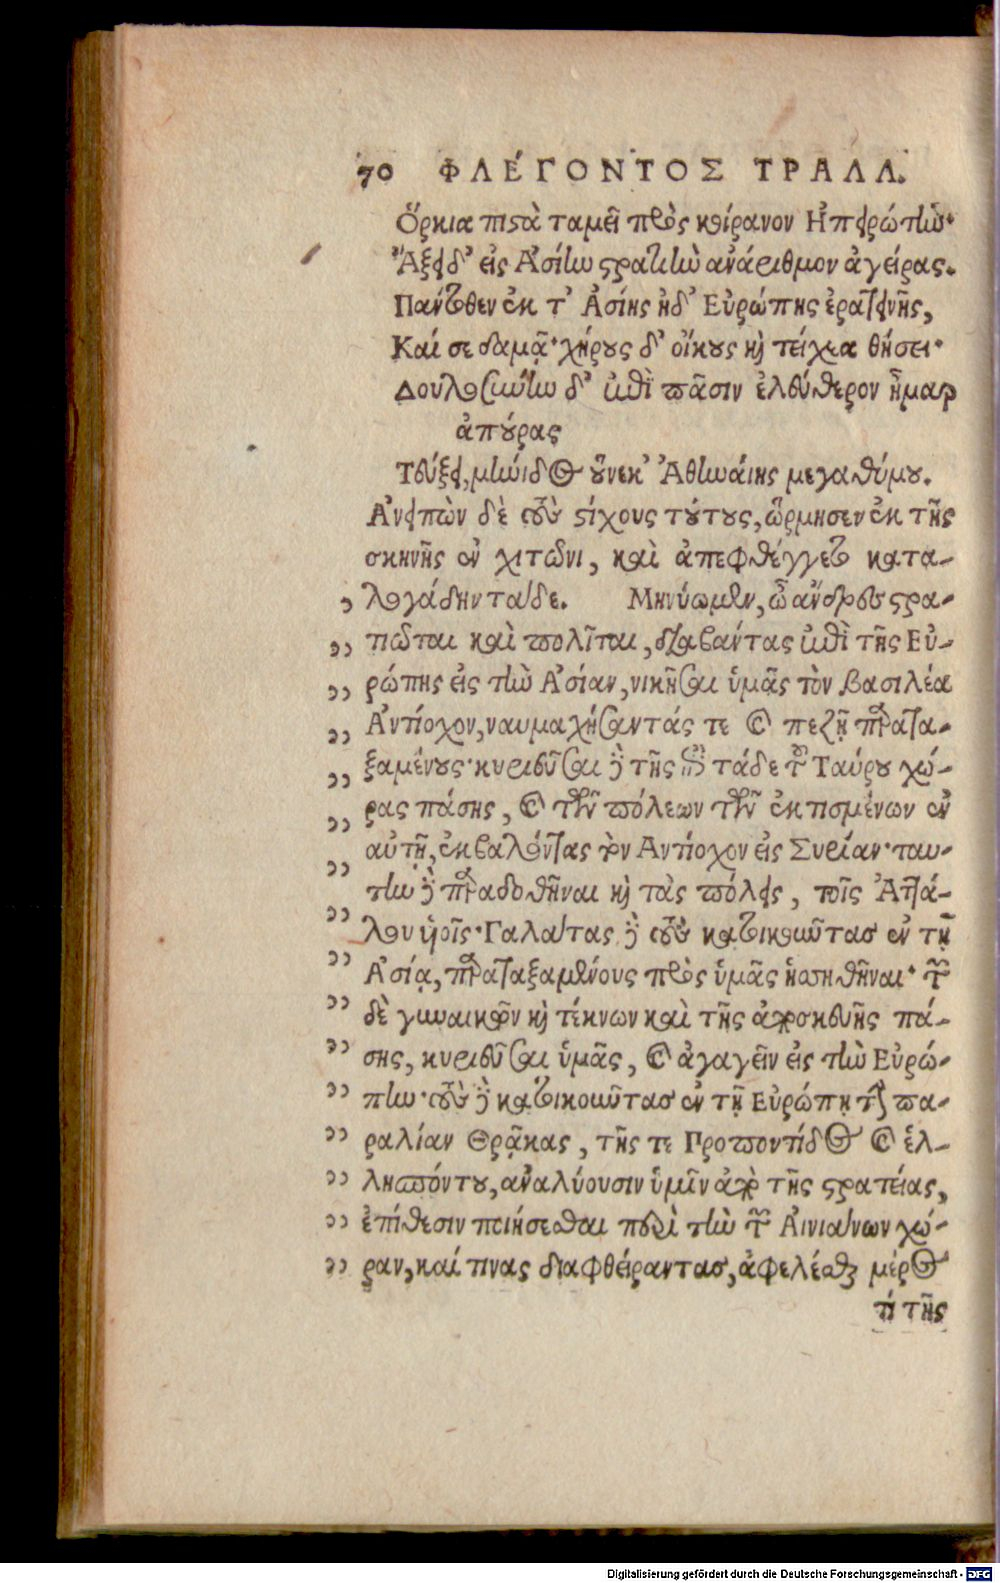 70 ΦΛΈΓΟΝΤΟΣ ΤΡΑΛΛ.
Ὅρκια πιστὰ ταμεῖ πρὸς κοίρανον Ἠπειρώτην·
Ἄξει δ' εἰς Ἀσίην στρατιὴν ἀνάριθμον ἀγείρας.
Πάντοθεν ἐκ τ' Ἀσίης ἠδ' Εὐρώπης ἐρατεινῆς,
Καί σε δαμᾷ· χήρους δ' οἴκους καὶ τείχεα θήσει·
Δουλοσύνην δ' ἐπὶ πᾶσιν ἐλεύθερον ἦμαρ
ἀπούρας
Τεύξει, μήνιδος οὕνεκ' Ἀθηνάιης μεγαθύμου.
Ἀνειπὼν δὲ τοὺς στίχους τούτους, ὥρμησεν ἐκ τῆς
σκηνῆς ἐν χιτῶνι, καὶ ἀπεφθέγγετο κατα-
λογάδην τάδε. Μηνύωμεν, ὦ ἄνδρες στρα-
τιῶται καὶ πολῖται, διαβάντας ἐπὶ τῆς Εὐ-
ρώπης εἰς τὴν Ἀσίαν, νικῆσαι ὑμᾶς τὸν βασιλέα
Ἀντίοχον, ναυμαχήσαντάς τε καὶ πεζῇ παρατα-
ξαμένους· κυριεῦσαι δὲ τῆς ἐπὶ τάδε τοῦ Ταύρου χώ-
ρας πάσης, καὶ τῶν πόλεων τῶν ἐκτισμένων ἐν
αὐτῇ, ἐκβαλόντας τὸν Ἀντίοχον εἰς Συρίαν· ταύ-
την δὲ παραδοθῆναι καὶ τὰς πόλεις, τοῖς Ἀττά-
λου υἱοῖς· Γαλάτας δὲ τοὺς κατοικοῦντας ἐν τῇ
Ἀσίᾳ, παραταξαμένους πρὸς ὑμᾶς ἡσσηθῆναι· τῶν
δὲ γυναικῶν καὶ τέκνων καὶ τῆς ἀποσκευῆς πά-
σης, κυριεῦσαι ὑμᾶς, καὶ ἀγαγεῖν εἰς τὴν Εὐρώ-
πην· τοὺς δὲ κατοικοῦντας ἐν τῇ Εὐρώπῃ τὴν πα-
ραλίαν Θρᾷκας, τῆς τε Προποντίδος καὶ ἑλ-
λησπόντου, ἀναλύουσιν ὑμῖν ἀπὸ τῆς στρατείας,
ἐπίθεσιν ποιήσεσθαι περὶ τὴν τῶν Αἰνιάνων χώ-
ραν, καί τινας διαφθείραντας, ἀφελέσθαι μέρος
τι τῆς
Digitalisierung gefördert durch die Deutsche Forschungsgemeinschaft - DFG